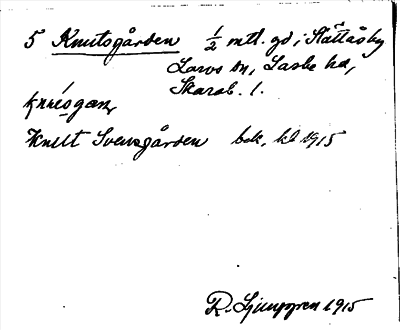 5 Knutsgården 1/2 mtl. gd i Slättäsby
Larvs sn, Laske hd,
Skarab. l.
Knut Svensgården bok, kb 1915
R. Ljunggren 1915